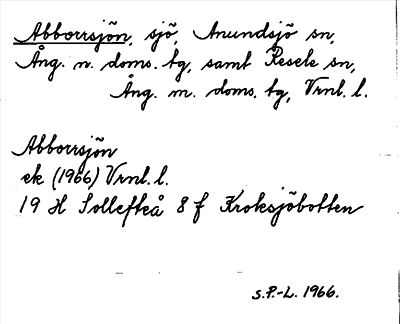 Abborrsjön, sjö, Anundsjö sn,
Ång. n. doms. tg, samt Resele sn,
Ång. m. doms. tg, Vrnl. l.
Abborrsjön
ek (1966) Vrnl. l.
19 H Sollefteå 8 f Kroksjöbotten
S.P.-L. 1966.